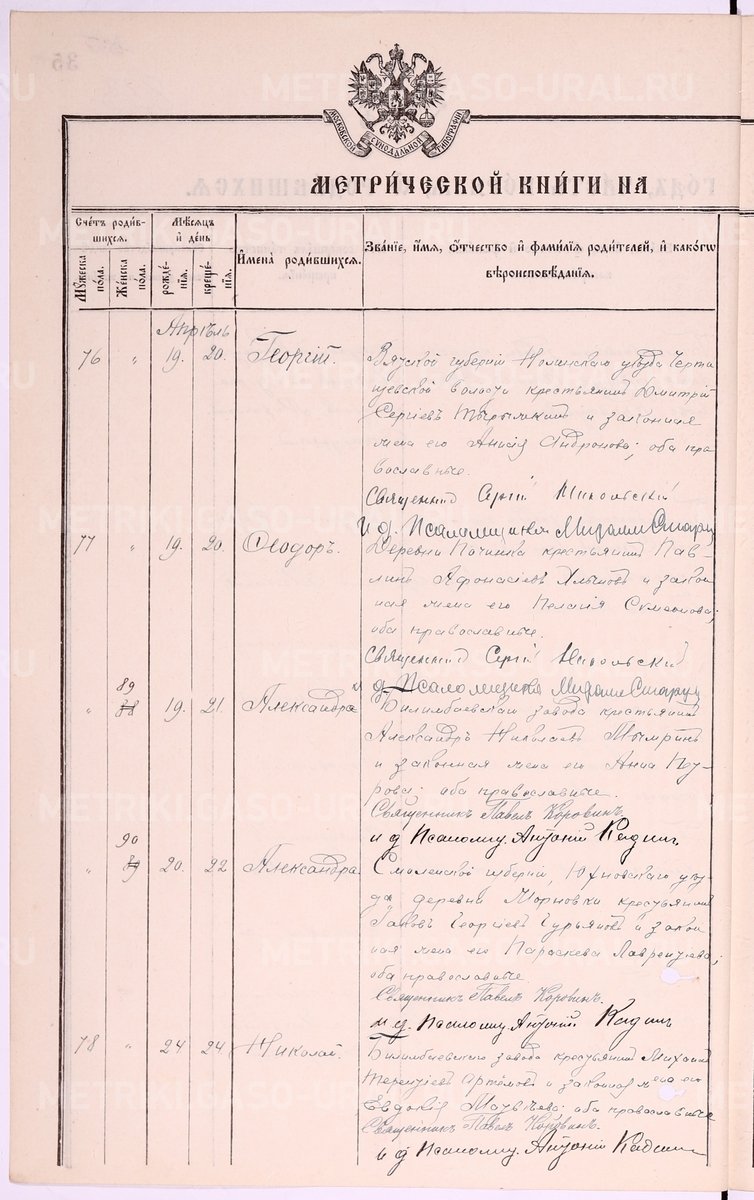 METRIKI.GASO-URAL.RU
МОСКОВСКОЙ СѴНОДАЛЬНОЙ ТИПОГРАФІИ
МЕТРИ́ЧЕСКОЙ КНИ́ГИ НА
Счётъ роди́вшихся.
Мѣ́сяцъ и де́нь
Имена̀ роди́вшихся.
Зва́нїе, и́мя, о́тчество и фами́лїя роди́телей, и како́гѡ вѣроисповѣ́данїя.
Му́жеска по́ла.
Же́нска по́ла.
рожде́нїя.
креще́нїя.
Апрѣль
76 " 19. 20. Георгій. Вятской губерніи Нолинскаго уѣзда
шевской волости крестьянинъ Димитрій
Сергіевъ и законная
жена его Анисія Андронова; оба пра-
вославные.
Священникъ Сергій Никольскій
И. д. Псаломщика
77 " 19. 20. Ѳеодоръ. Деревни Починка крестьянинъ Пав-
линъ Афонасіевъ и закон-
ная жена его Пелагія Симеонова;
оба православные.
Священникъ Сергій Никольскій
и д. Псаломщика
" 89 88 19. 21. Александра Билимбаевскаго завода крестьянинъ
Александръ Николаевъ Мымринъ
и законная жена его Анна Пет-
рова; оба православные.
Священникъ Павелъ Коровинъ.
и д Псаломщ. Антоній
" 90 89 20. 22 Александра. Смоленской губерніи, Юхновскаго уѣз-
да деревни крестьянинъ
Іаковъ Георгіевъ Гурьяновъ и закон-
ная жена его Параскева Лаврентіева;
оба православные.
Священникъ Павелъ Коровинъ.
и. д. Псаломщ. Антоній
78 " 24 24 Николай. Билимбаевскаго завода крестьянинъ Михаилъ
Терентіевъ Артёмовъ и законная жена его
Евдокія Матвѣева; оба православные
Священникъ Павелъ Коровинъ.
и д Псаломщ. Антоній